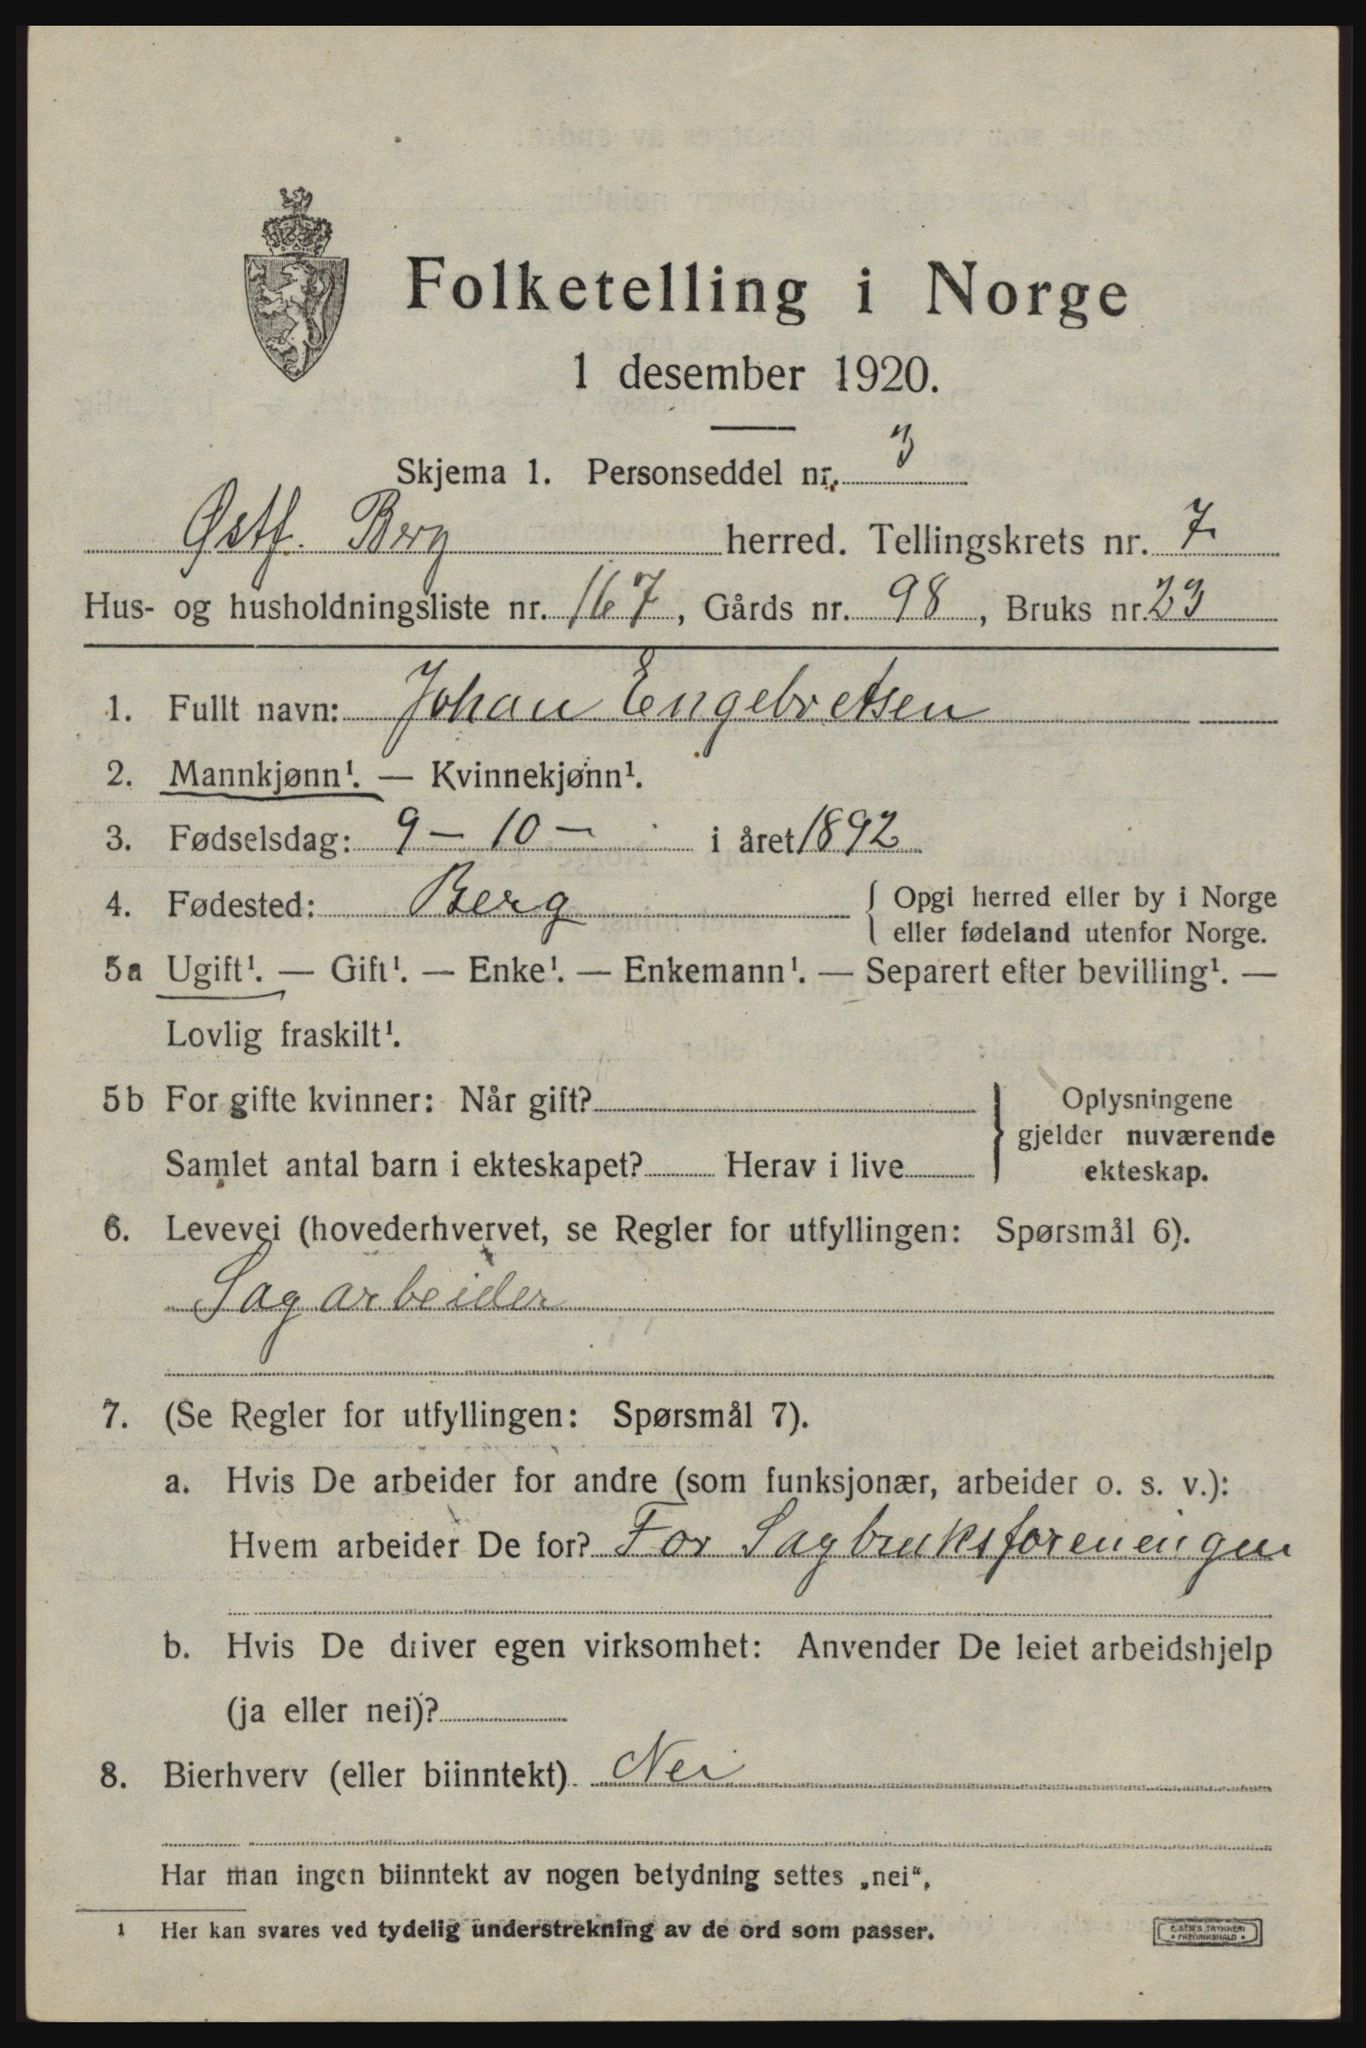 Folketelling i Norge
1 desember 1920.
Skjema 1. Personseddel nr. 3
Østf. Berg herred. Tellingskrets nr. 7
Hus- og husholdningsliste nr. 167, Gårds nr. 98, Bruks nr. 23
1. Fullt navn: Johan Engebretsen
2. Mannkjønn¹. — Kvinnekjønn¹.
3. Fødselsdag: 9 — 10 — i året 1892
4. Fødested: Berg { Opgi herred eller by i Norge
eller fødeland utenfor Norge.
5a Ugift¹. — Gift¹. — Enke¹. — Enkemann¹. — Separert efter bevilling¹. —
Lovlig fraskilt¹.
5b For gifte kvinner: Når gift? } Oplysningene
gjelder nuværende
Samlet antal barn i ekteskapet? Herav i live
ekteskap.
6. Levevei (hovederhvervet, se Regler for utfyllingen: Spørsmål 6).
Sagarbeider
7. (Se Regler for utfyllingen: Spørsmål 7).
a. Hvis De arbeider for andre (som funksjonær, arbeider o. s. v.):
Hvem arbeider De for? For Sagbruksforeneingen
b. Hvis De driver egen virksomhet: Anvender De leiet arbeidshjelp
(ja eller nei)?
8. Bierhverv (eller biinntekt) Nei
Har man ingen biinntekt av nogen betydning settes „nei“.
1 Her kan svares ved tydelig understrekning av de ord som passer.
E. SEM'S TRYKKERI
• FREDRIKSHALD •